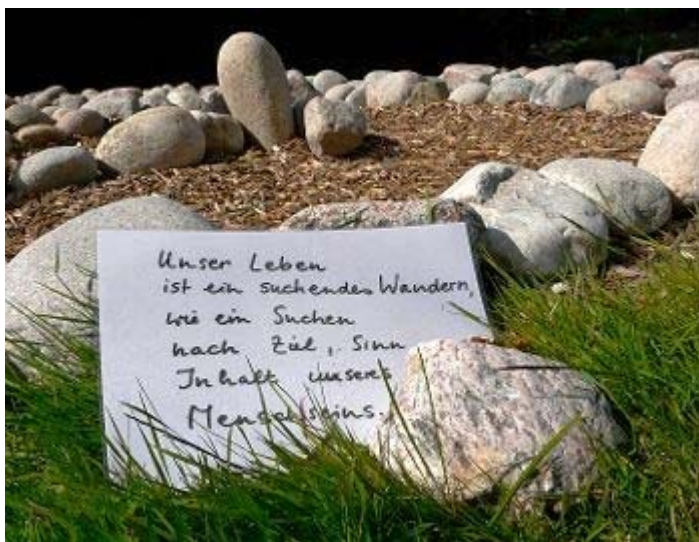 Unser Leben
ist ein suchendes Wandern,
wie ein Suchen
nach Ziel, Sinn
Inhalt unseres
Menschseins.